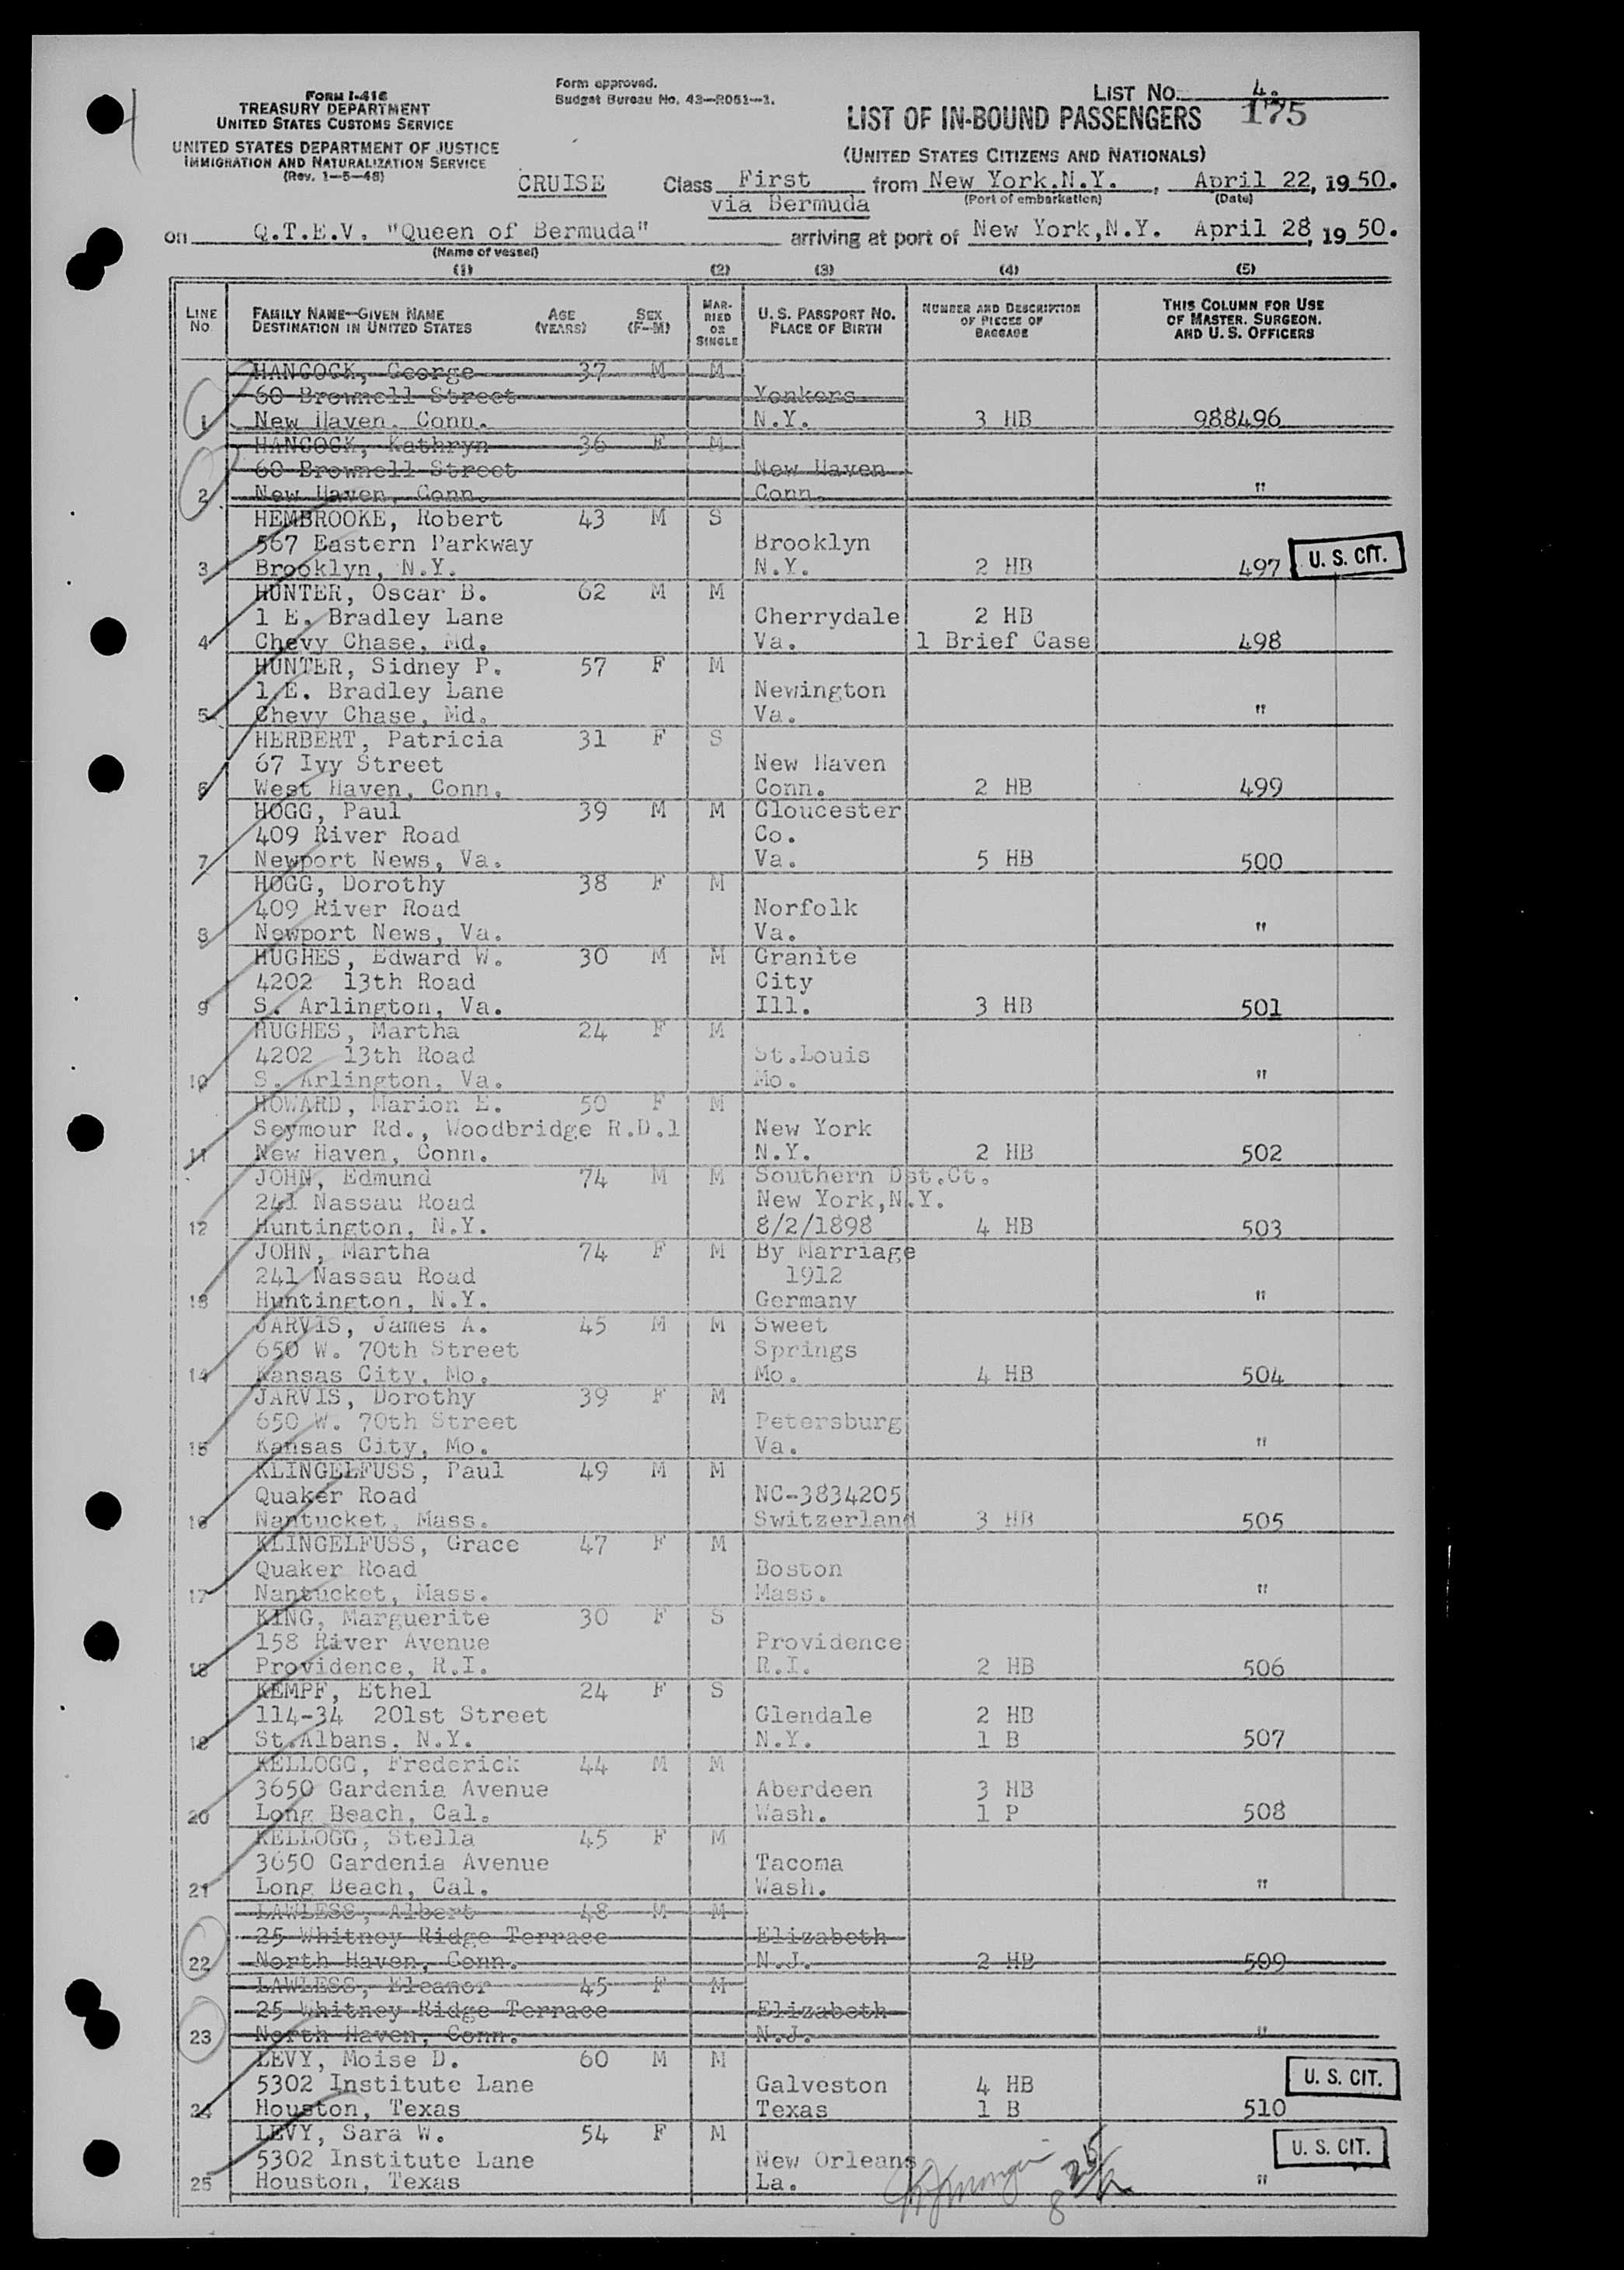 FORM I-416
TREASURY DEPARTMENT
UNITED STATES CUSTOMS SERVICE
UNITED STATES DEPARTMENT OF JUSTICE
IMMIGRATION AND NATURALIZATION SERVICE
(Rev. 1-5-48)
Form approved.
Budget Bureau No. 43-R051-1.
LIST No. 4.
LIST OF IN-BOUND PASSENGERS 175
(UNITED STATES CITIZENS AND NATIONALS)
CRUISE Class First from New York.N.Y., April 22, 1950.
via Bermuda (Port of embarkation) (Date)
on Q.T.E.V. "Queen of Bermuda" arriving at port of New York,N.Y. April 28, 1950.
(Name of vessel)
(1) (2) (3) (4) (5)
LINE No. FAMILY NAME-GIVEN NAME DESTINATION IN UNITED STATES AGE (YEARS) SEX (F-M) MARRIED OR SINGLE U. S. PASSPORT No. PLACE OF BIRTH NUMBER AND DESCRIPTION OF PIECES OF BAGGAGE THIS COLUMN FOR USE OF MASTER. SURGEON. AND U. S. OFFICERS
HANCOCK, George 37 M M
60 Brownell Street Yonkers
1 New Haven, Conn. N.Y. 3 HB 988496
HANCOCK, Kathryn 36 F M
60 Brownell Street New Haven
2 New Haven, Conn. Conn. "
HEMBROOKE, Robert 43 M S
567 Eastern Parkway Brooklyn
3 Brooklyn, N.Y. N.Y. 2 HB 497 U. S. CIT.
HUNTER, Oscar B. 62 M M
1 E. Bradley Lane Cherrydale 2 HB
4 Chevy Chase, Md. Va. 1 Brief Case 498
HUNTER, Sidney P. 57 F M
1 E. Bradley Lane Newington
5 Chevy Chase, Md. Va. "
HERBERT, Patricia 31 F S
67 Ivy Street New Haven
6 West Haven, Conn. Conn. 2 HB 499
HOGG, Paul 39 M M Gloucester
409 River Road Co.
7 Newport News, Va. Va. 5 HB 500
HOGG, Dorothy 38 F M
409 River Road Norfolk
8 Newport News, Va. Va. "
HUGHES, Edward W. 30 M M Granite
4202 13th Road City
9 S. Arlington, Va. Ill. 3 HB 501
HUGHES, Martha 24 F M
4202 13th Road St.Louis
10 S. Arlington, Va. Mo. "
HOWARD, Marion E. 50 F M
Seymour Rd., Woodbridge R.D.1 New York
11 New Haven, Conn. N.Y. 2 HB 502
JOHN, Edmund 74 M M Southern Dst.Ct.
241 Nassau Road New York,N.Y.
12 Huntington, N.Y. 8/2/1898 4 HB 503
JOHN, Martha 74 F M By Marriage
241 Nassau Road 1912
13 Huntington, N.Y. Germany "
JARVIS, James A. 45 M M Sweet
650 W. 70th Street Springs
14 Kansas City, Mo. Mo. 4 HB 504
JARVIS, Dorothy 39 F M
650 W. 70th Street Petersburg
15 Kansas City, Mo. Va. "
KLINGELFUSS, Paul 49 M M
Quaker Road NC-3834205
16 Nantucket, Mass. Switzerland 3 HB 505
KLINGELFUSS, Grace 47 F M
Quaker Road Boston
17 Nantucket, Mass. Mass. "
KING, Marguerite 30 F S
158 River Avenue Providence
18 Providence, R.I. R.I. 2 HB 506
KEMPF, Ethel 24 F S
114-34 201st Street Glendale 2 HB
19 St.Albans, N.Y. N.Y. 1 B 507
KELLOGG, Frederick 44 M M
3650 Gardenia Avenue Aberdeen 3 HB
20 Long Beach, Cal. Wash. 1 P 508
KELLOGG, Stella 45 F M
3650 Gardenia Avenue Tacoma
21 Long Beach, Cal. Wash. "
LAWLESS, Albert 48 M M
25 Whitney Ridge Terrace Elizabeth
22 North Haven, Conn. N.J. 2 HB 509
LAWLESS, Eleanor 45 F M
25 Whitney Ridge Terrace Elizabeth
23 North Haven, Conn. N.J. "
LEVY, Moise D. 60 M M
5302 Institute Lane Galveston 4 HB U. S. CIT.
24 Houston, Texas Texas 1 B 510
LEVY, Sara W. 54 F M U. S. CIT.
5302 Institute Lane New Orleans
25 Houston, Texas La. "